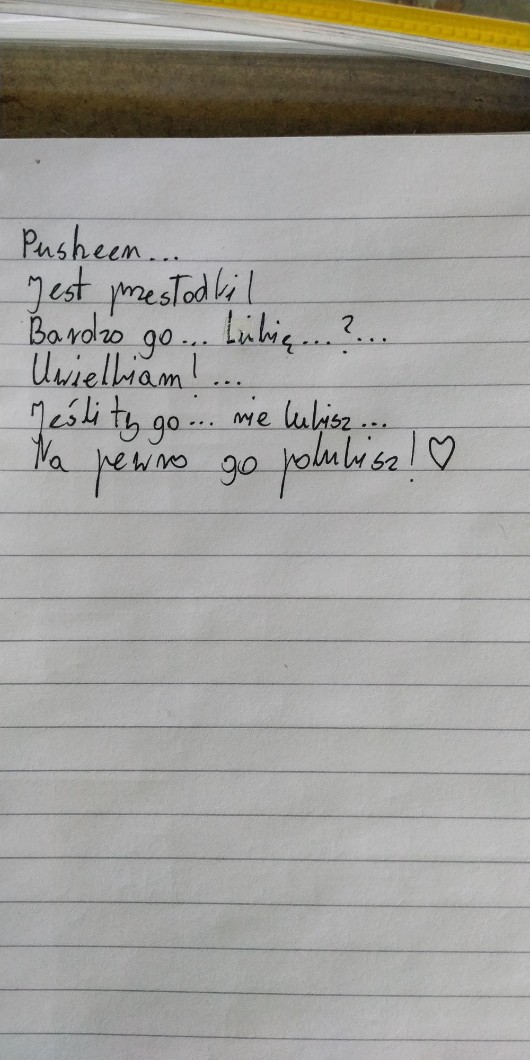 Pusheen...
Jest przesłodki!
Bardzo go... Lubię...?...
Uwielbiam!...
Jeśli ty go... nie lubisz...
Na pewno go polubisz!♡